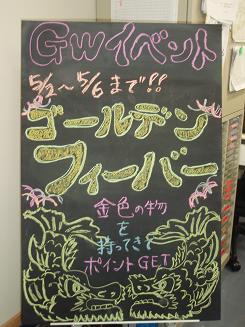 GWイベント
5/2〜5/6まで!!
ゴールデン
フィーバー
金色の物
を
持ってきて
ポイントGET